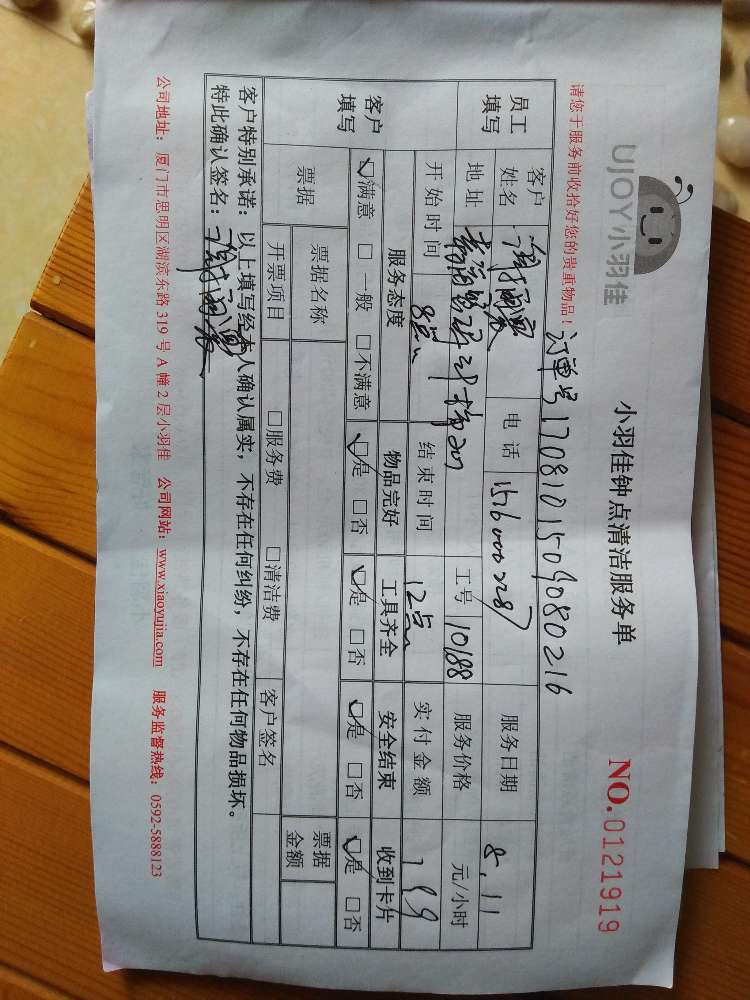 UJOY小羽佳
小羽佳钟点清洁服务单
NO.0121919
请您于服务前收拾好您的贵重物品！
订单号1708101509080216
员工填写
客户姓名
电话
服务日期 8.11
地址
工号 10188
服务价格 元/小时
开始时间 8点
结束时间 12点
实付金额 199
客户填写
服务态度 物品完好 工具齐全 安全结束 收到卡片
☑满意 □一般 □不满意 ☑是 □否 ☑是 □否 ☑是 □否 ☑是 □否
票据
票据名称
票据金额
开票项目 □服务费 □清洁费 客户签名
客户特别承诺：以上填写经本人确认属实，不存在任何纠纷，不存在任何物品损坏。
特此确认签名：
公司地址：厦门市思明区湖滨东路319号A幢2层小羽佳 公司网站：www.xiaoyujia.com 服务监督热线：0592-5888123